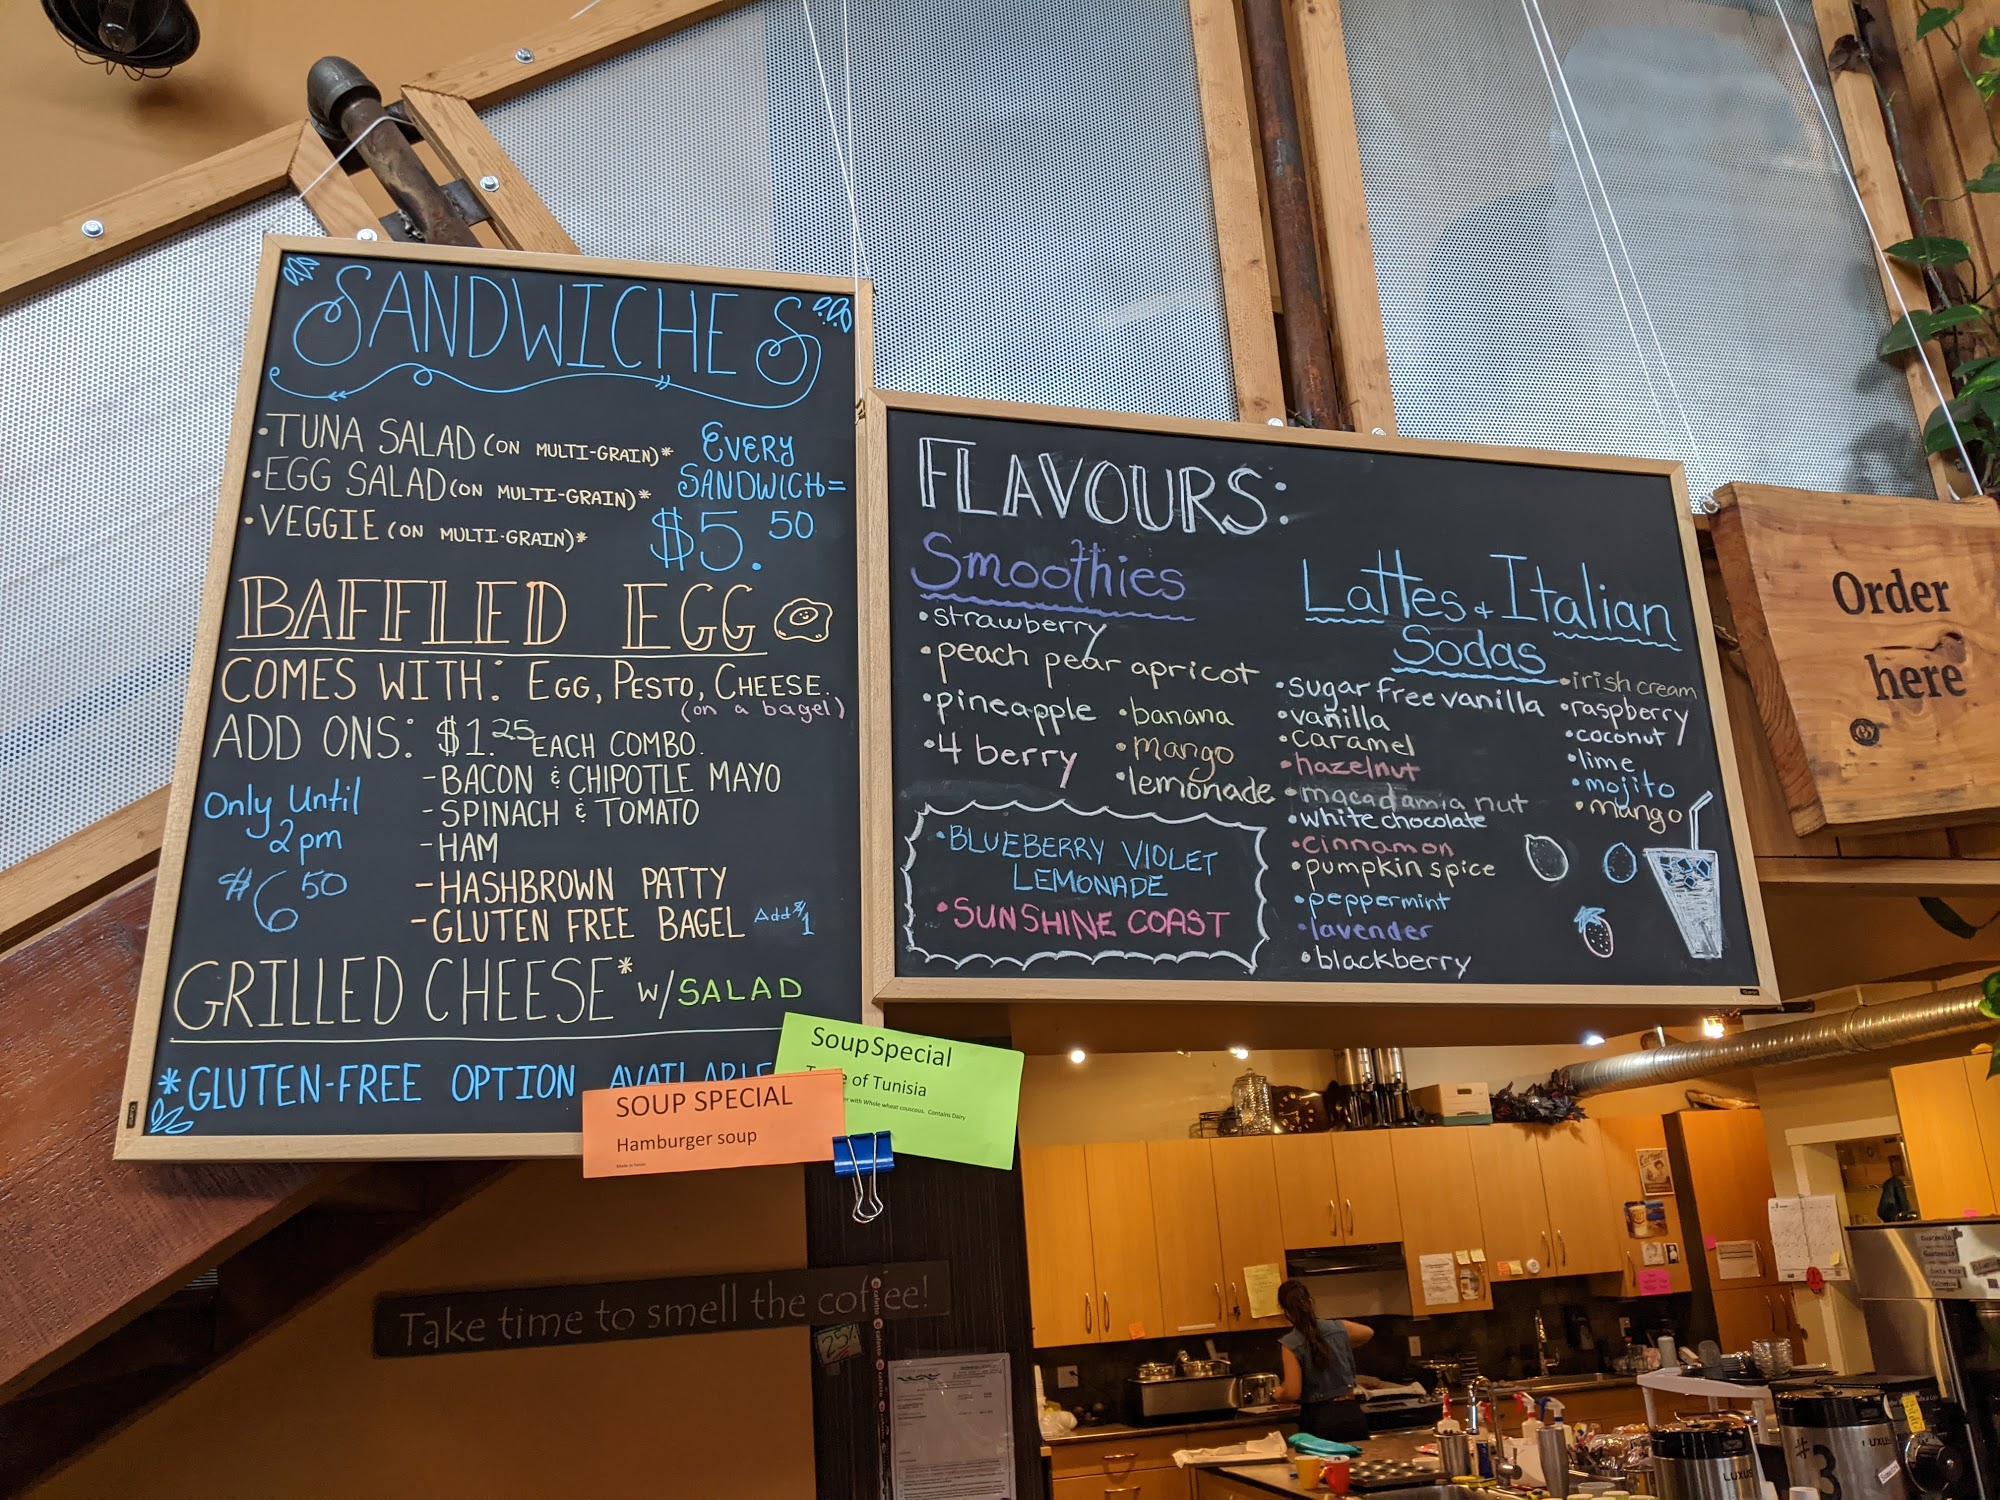 SANDWICHES
• TUNA SALAD (ON MULTI-GRAIN)*
• EGG SALAD (ON MULTI-GRAIN)*
• VEGGIE (ON MULTI-GRAIN)*
EVERY
SANDWICH =
$5.50
BAFFLED EGG
COMES WITH: EGG, PESTO, CHEESE.
(on a bagel)
ADD ONS: $1.25 EACH COMBO.
- BACON & CHIPOTLE MAYO
- SPINACH & TOMATO
- HAM
- HASHBROWN PATTY
- GLUTEN FREE BAGEL Add $1
Only Until
2pm
$6.50
GRILLED CHEESE* W/SALAD
*GLUTEN-FREE OPTION AVAILABLE
Soup Special
of Tunisia
with Whole wheat couscous. Contains Dairy
SOUP SPECIAL
Hamburger soup
FLAVOURS:
Smoothies
• strawberry
• peach pear apricot
• pineapple
• 4 berry
• banana
• mango
• lemonade
• BLUEBERRY VIOLET
LEMONADE
• SUNSHINE COAST
Lattes & Italian
Sodas
• sugar free vanilla
• vanilla
• caramel
• hazelnut
• macadamia nut
• white chocolate
• cinnamon
• pumpkin spice
• peppermint
• lavender
• blackberry
• irish cream
• raspberry
• coconut
• lime
• mojito
• mango
Order
here
Take time to smell the coffee!
25%
#3
LUXUS